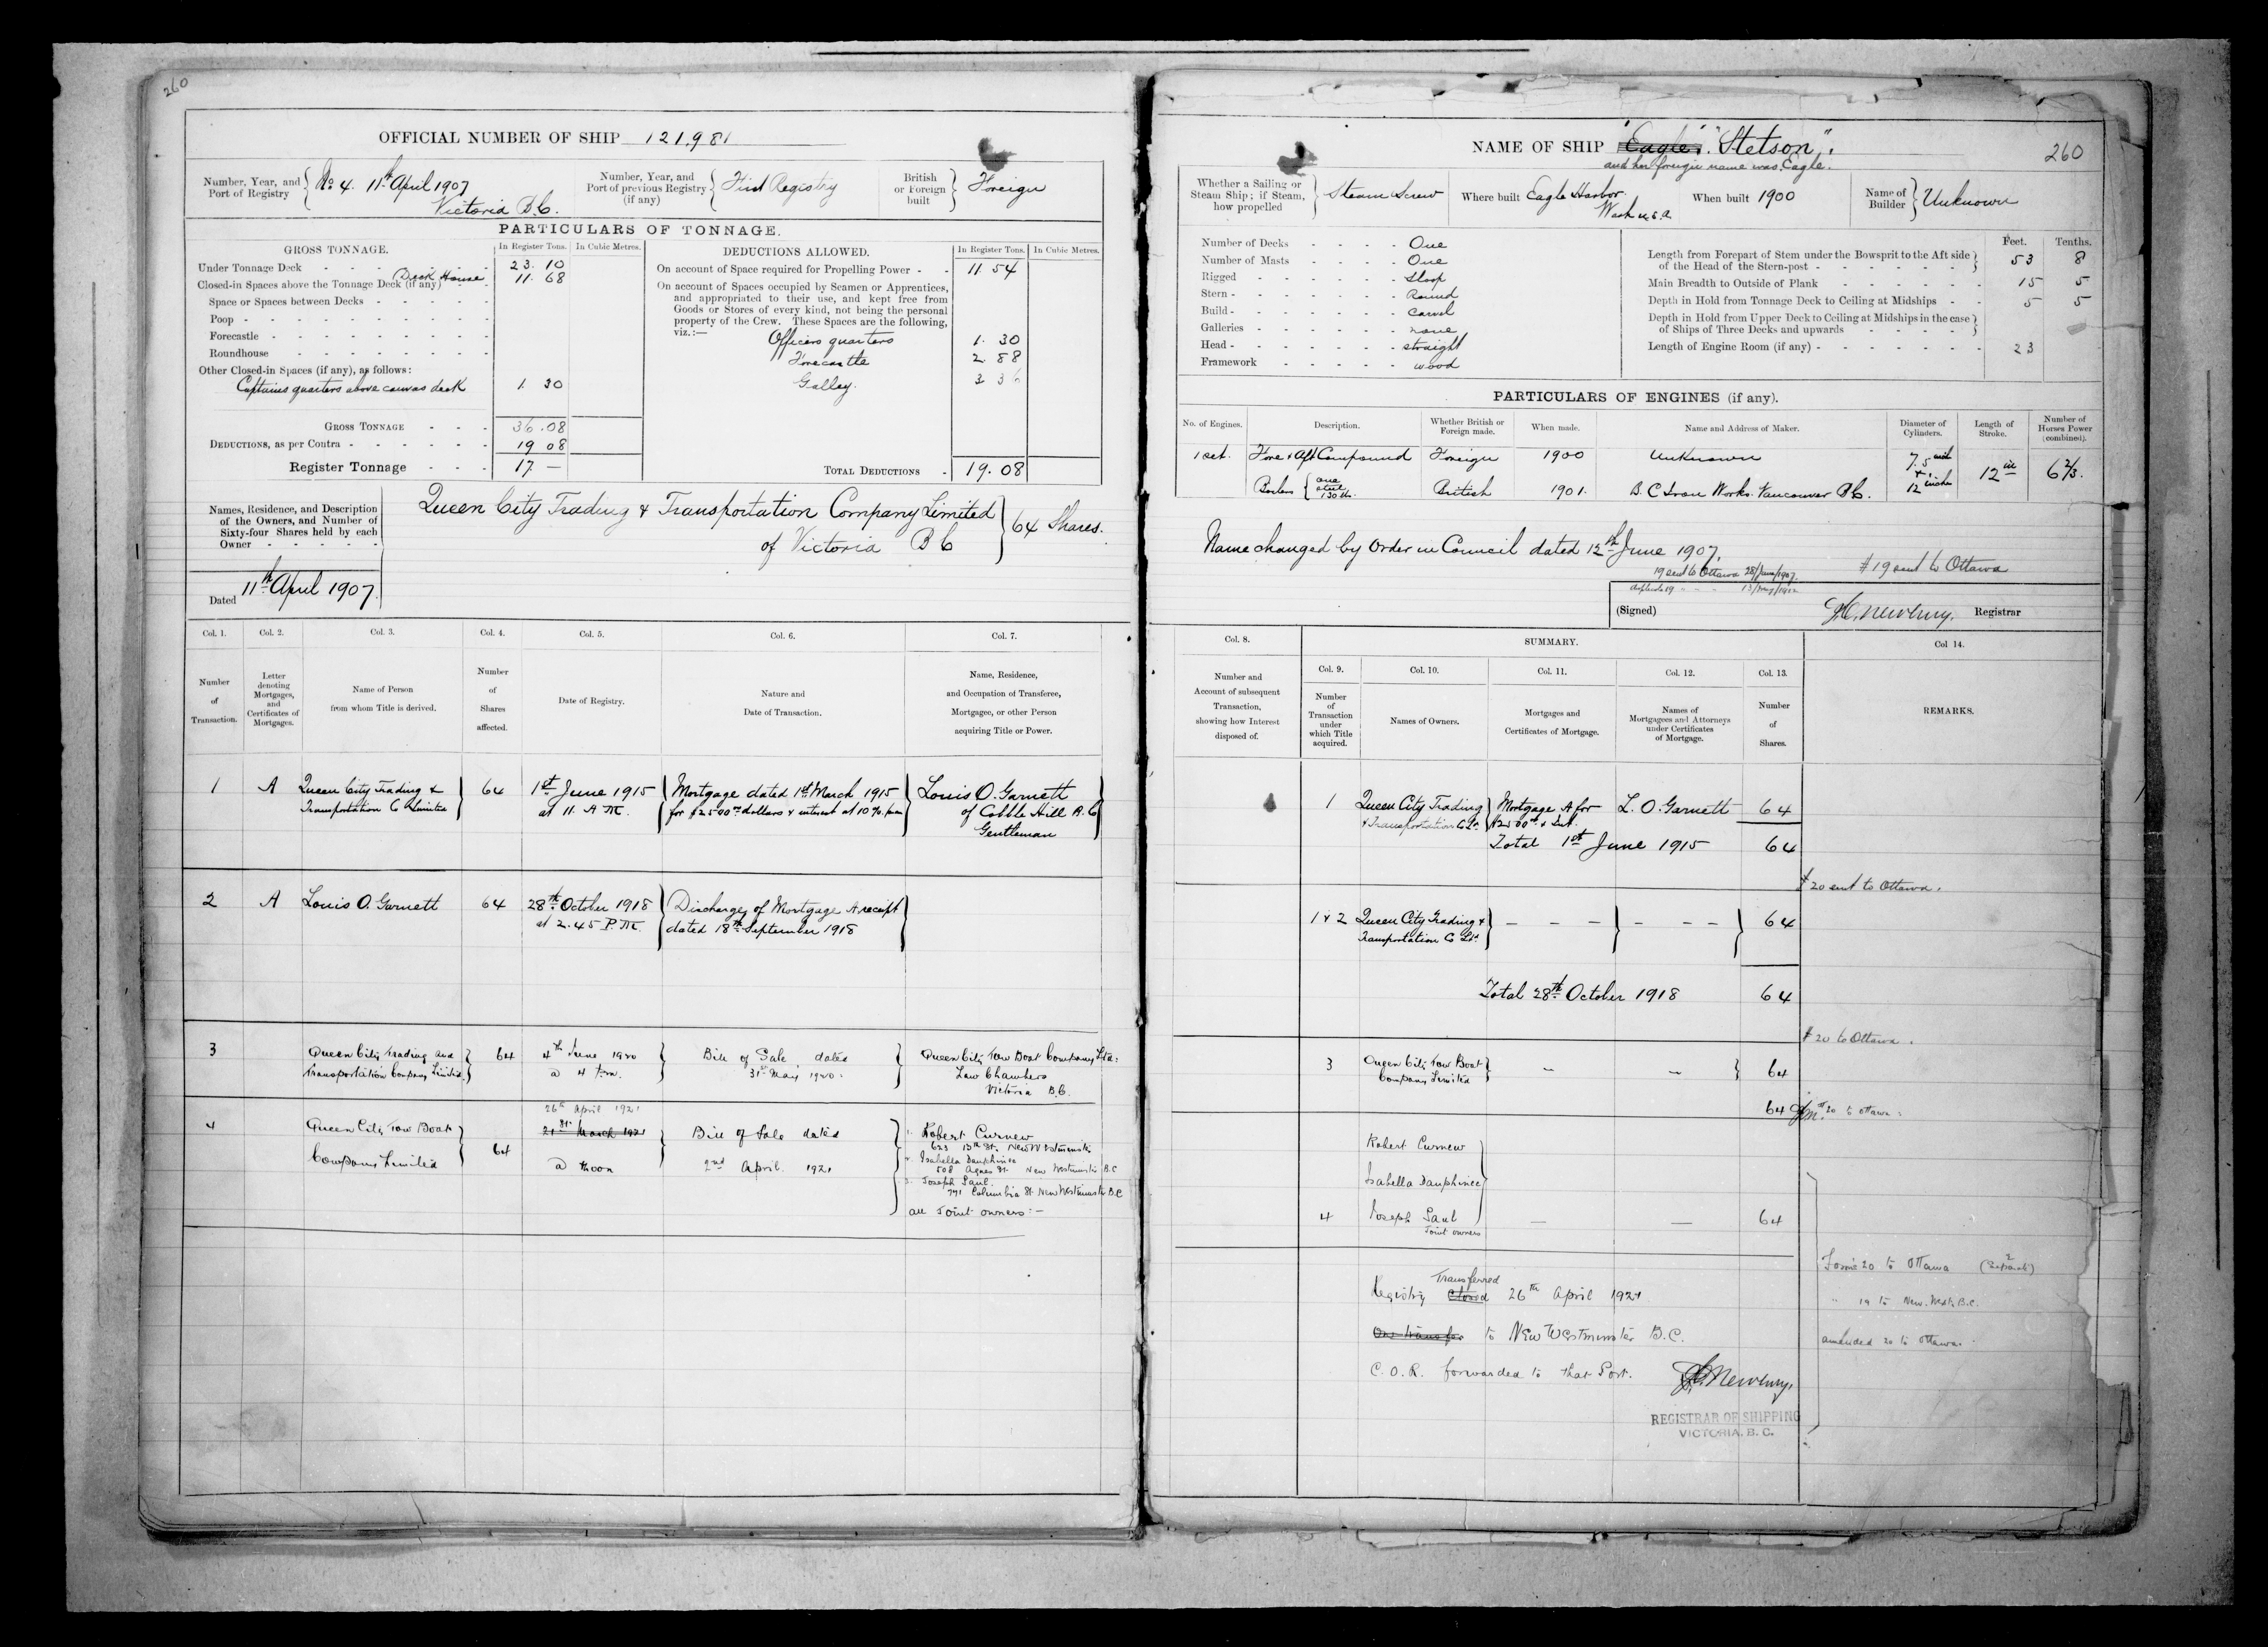 260
OFFICIAL NUMBER OF SHIP 121,981
Number, Year, and Port of Registry
No 4. 11th April 1907
Victoria B.C.
Number, Year, and Port of previous Registry (if any)
First Registry
British or Foreign built
Foreign
PARTICULARS OF TONNAGE.
GROSS TONNAGE.
In Register Tons.
In Cubic Metres.
DEDUCTIONS ALLOWED.
In Register Tons.
In Cubic Metres.
Under Tonnage Deck - 23. 10
Closed-in Spaces above the Tonnage Deck (if any) Deck House 11. 68
Space or Spaces between Decks
Poop
Forecastle
Roundhouse
Other Closed-in Spaces (if any), as follows:
Captains quarters above canvas deck 1. 30
GROSS TONNAGE 36.08
DEDUCTIONS, as per Contra 19 08
Register Tonnage 17 —
On account of Space required for Propelling Power 11. 54
On account of Spaces occupied by Seamen or Apprentices,
and appropriated to their use, and kept free from
Goods or Stores of every kind, not being the personal
property of the Crew. These Spaces are the following,
viz.:—
Officers quarters 1. 30
Forecastle 2. 88
Galley. 3 36
TOTAL DEDUCTIONS 19. 08
Names, Residence, and Description
of the Owners, and Number of
Sixty-four Shares held by each
Owner
Queen City Trading & Transportation Company Limited
of Victoria B C
64 Shares.
Dated 11th April 1907
Col. 1.
Number of Transaction.
Col. 2.
Letter denoting Mortgages, and Certificates of Mortgages.
Col. 3.
Name of Person from whom Title is derived.
Col. 4.
Number of Shares affected.
Col. 5.
Date of Registry.
Col. 6.
Nature and Date of Transaction.
Col. 7.
Name, Residence, and Occupation of Transferee, Mortgagee, or other Person acquiring Title or Power.
1 A Queen City Trading & Transportation Co Limited 64
1st June 1915
at 11. A M.
Mortgage dated 1st March 1915
for $2500 dollars & interest at 10%
Louis O. Garnett
of Cobble Hill B.C
Gentleman
2 A Louis O. Garnett 64
28th October 1918
at 2.45 P.M.
Discharge of Mortgage A receipt
dated 18th September 1918
3 Queen City Trading and
Transportation Company Limited 64
4th June 1920
Bill of Sale dated
31st May 1920
Queen City Tow Boat Company Ltd:
Law Chambers
Victoria B.C.
4 Queen City Tow Boat
Company Limited 64
26th April 1921
21st March 1921
@ Noon
Bill of Sale dated
2nd April 1921
1. Robert Curnew
623 13th St. New Westminster
2. Isabella Dauphinee
508 Agnes St. New Westminster B.C
3. Joseph Saul
771 Columbia St New Westminster B.C
all Joint owners:—
NAME OF SHIP "Eagle". "Stetson".
and her foreign name was Eagle.
260
Whether a Sailing or Steam Ship; if Steam, how propelled
Steam Screw
Where built Eagle Harbor
Wash U.S.A
When built 1900
Name of Builder
Unknown
Number of Decks One
Number of Masts One
Rigged Sloop
Stern Round
Build Carvel
Galleries none
Head straight
Framework wood
Feet. Tenths.
Length from Forepart of Stem under the Bowsprit to the Aft side
of the Head of the Stern-post 53 8
Main Breadth to Outside of Plank 15 5
Depth in Hold from Tonnage Deck to Ceiling at Midships 5 5
Depth in Hold from Upper Deck to Ceiling at Midships in the case
of Ships of Three Decks and upwards
Length of Engine Room (if any) 23
PARTICULARS OF ENGINES (if any).
No. of Engines.
Description.
Whether British or Foreign made.
When made.
Name and Address of Maker.
Diameter of Cylinders.
Length of Stroke.
Number of Horses Power (combined).
1 set. Fore & Aft Compound Foreign 1900 Unknown
7.5 inch & 12 inches
12 in
6 2/3.
Boilers one steel 130 lbs. British 1901. B.C Iron Works. Vancouver B.C.
Name changed by Order in Council dated 12th June 1907.
19 sent to Ottawa 28/June/1907.
# 19 sent to Ottawa
(Signed) Registrar
Col. 8.
Number and Account of subsequent Transaction, showing how Interest disposed of.
SUMMARY.
Col. 9.
Number of Transaction under which Title acquired.
Col. 10.
Names of Owners.
Col. 11.
Mortgages and Certificates of Mortgage.
Col. 12.
Names of Mortgagees and Attorneys under Certificates of Mortgage.
Col. 13.
Number of Shares.
Col 14.
REMARKS.
1 Queen City Trading
& Transportation Co Ltd.
Mortgage A for
$2500 & Int.
L. O. Garnett 64
Total 1st June 1915 64
# 20 sent to Ottawa.
1 & 2 Queen City Trading &
Transportation Co Ltd. — — — — — — 64
Total 28th October 1918 64
# 20 to Ottawa.
3 Queen City Tow Boat
Company Limited — — 64
64
20 to Ottawa:
Robert Curnew
Isabella Dauphinee
4 Joseph Saul — — 64
Joint owners
Transferred
Registry closed 26th April 1921
On transfer to New Westminster B.C.
C.O.R. forwarded to that Port.
REGISTRAR OF SHIPPING
VICTORIA, B. C.
Forms 20 to Ottawa
" 19 to New West. B.C.
amended 20 to Ottawa.